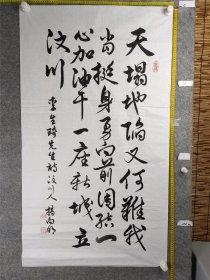 天塌地陷又何难我
当挺身勇向前团结一
心加油干一座新城立
汶川
李生琦先生诗汶川人
杨向明